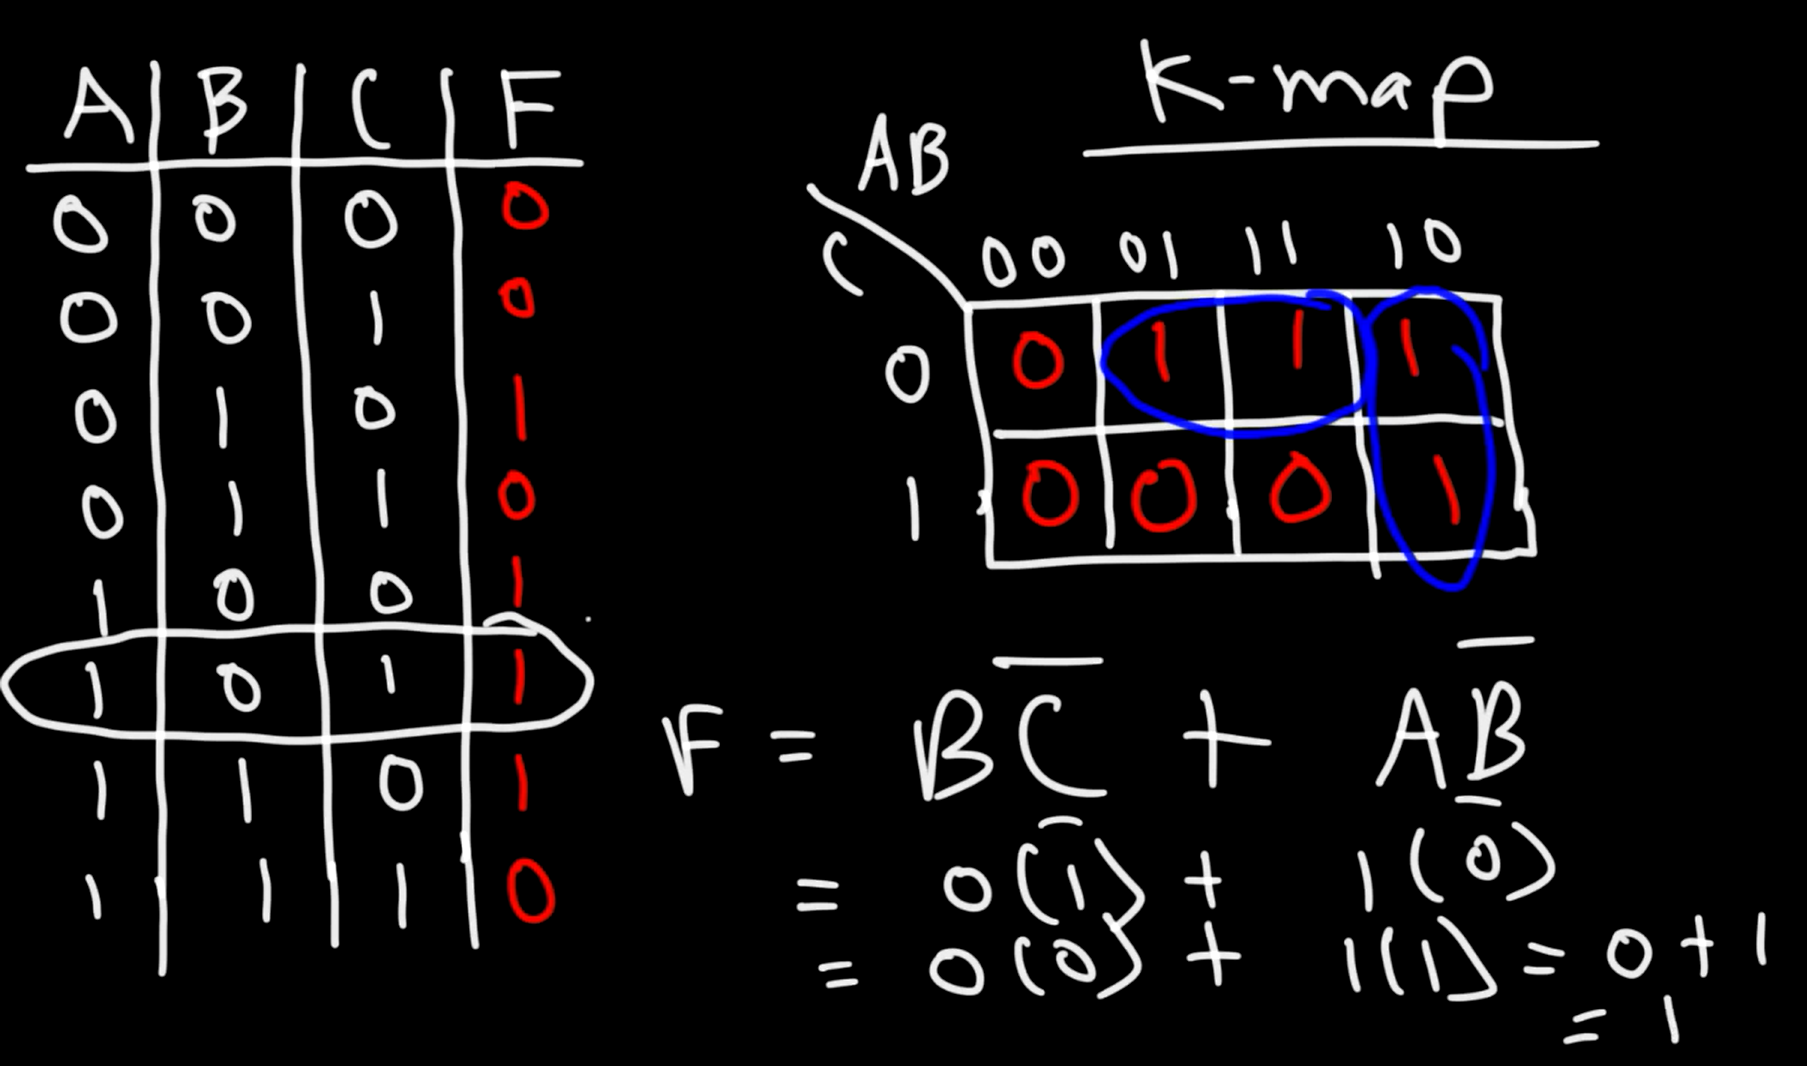 A B C F
0 0 0 0
0 0 1 0
0 1 0 1
0 1 1 0
1 0 0 1
1 0 1 1
1 1 0 1
1 1 1 0
K-map
AB
C
00 01 11 10
0 0 1 1 1
1 0 0 0 1
F = BC̅ + AB̅
= 0(1̅) + 1(0̅)
= 0(0) + 1(1) = 0 + 1
= 1